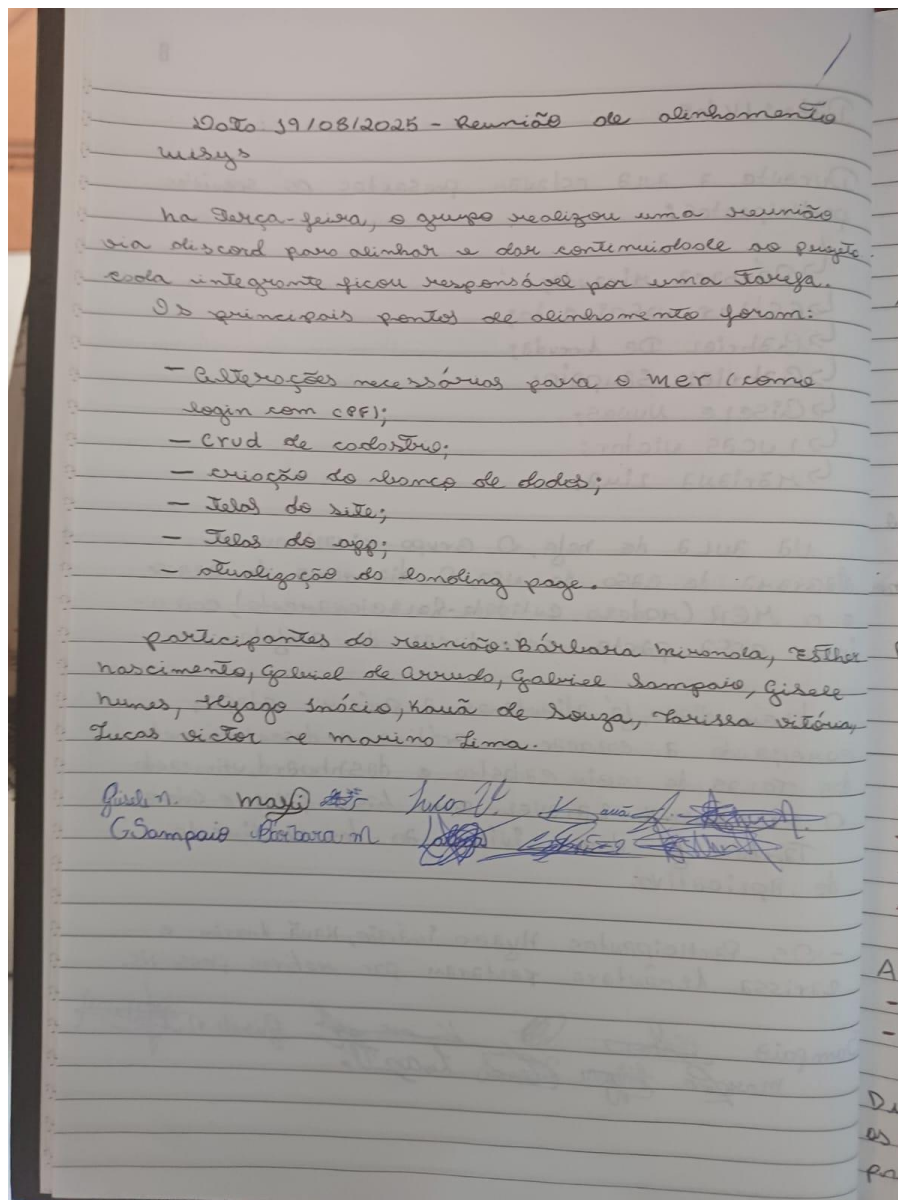 Data 19/08/2025 - Reunião de alinhamento
wisys
na Terça-feira, o grupo realizou uma reunião
via discord para alinhar e dar continuidade ao projeto.
cada integrante ficou responsável por uma tarefa.
Os principais pontos de alinhamento foram:
- alterações necessárias para o mer (como
login com CPF);
- crud de cadastro;
- criação do banco de dados;
- Telas do site;
- Telas do app;
- atualização da landing page.
participantes da reunião: Bárbara miranda, Esther
nascimento, Gabriel de arruda, Gabriel Sampaio, Gisele
nunes, Hyago Inácio, Kauã de Souza, Larissa vitória,
Lucas victor e marina Lima.
Gisele n. Lucas V. Kauã
GSampaio Bárbara m
A
-
-
as